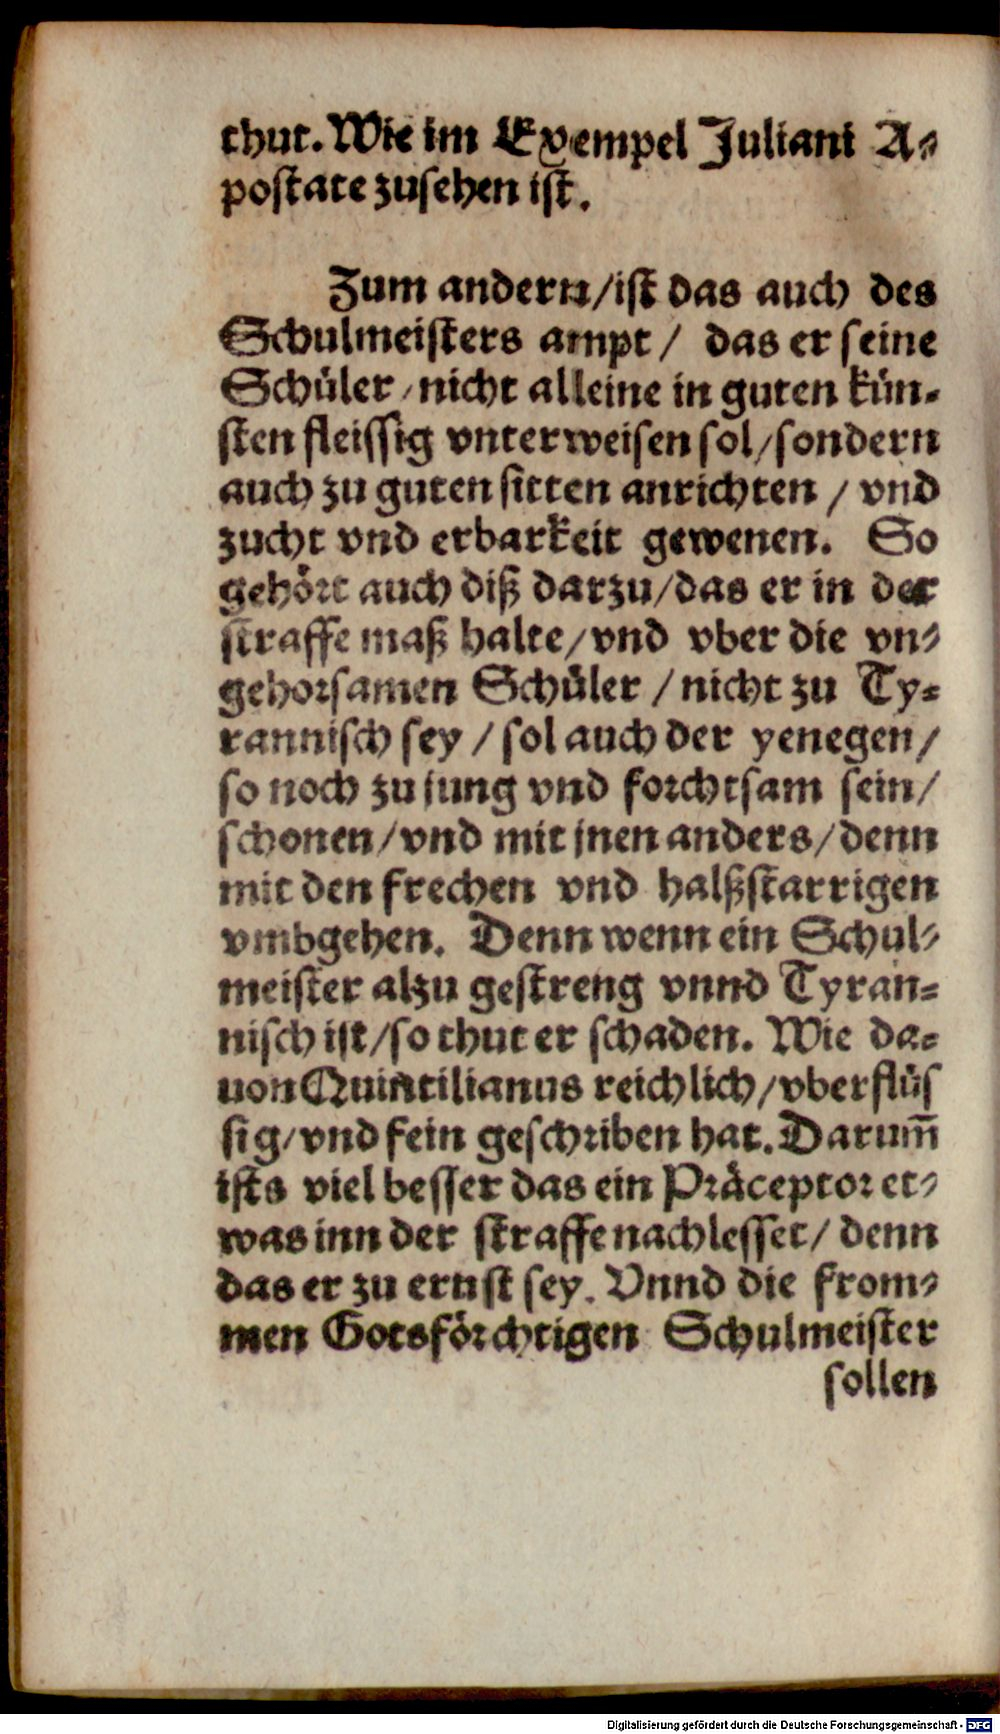 thut. Wie im Exempel Juliani A⸗
postate zusehen ist.
Zum andern/ist das auch des
Schulmeisters ampt/ das er seine
Schüler/nicht alleine in guten kün⸗
sten fleissig vnterweisen sol/sondern
auch zu guten sitten anrichten / vnd
zucht vnd erbarkeit gewenen. So
gehört auch diß darzu/das er in der
straffe maß halte/vnd vber die vn⸗
gehorsamen Schüler / nicht zu Ty⸗
rannisch sey / sol auch der yenegen/
so noch zu jung vnd forchtsam sein/
schonen/vnd mit jnen anders/denn
mit den frechen vnd halßstarrigen
vmbgehen. Denn wenn ein Schul⸗
meister alzu gestreng vnnd Tyran⸗
nisch ist/so thut er schaden. Wie da⸗
uon Quintilianus reichlich/vberflüs
sig/vnd fein geschriben hat. Darum̅
ists viel besser das ein Präceptor et⸗
was inn der straffe nachlesset/ denn
das er zu ernst sey. Vnnd die from⸗
men Gotsförchtigen Schulmeister
sollen
Digitalisierung gefördert durch die Deutsche Forschungsgemeinschaft - DFG